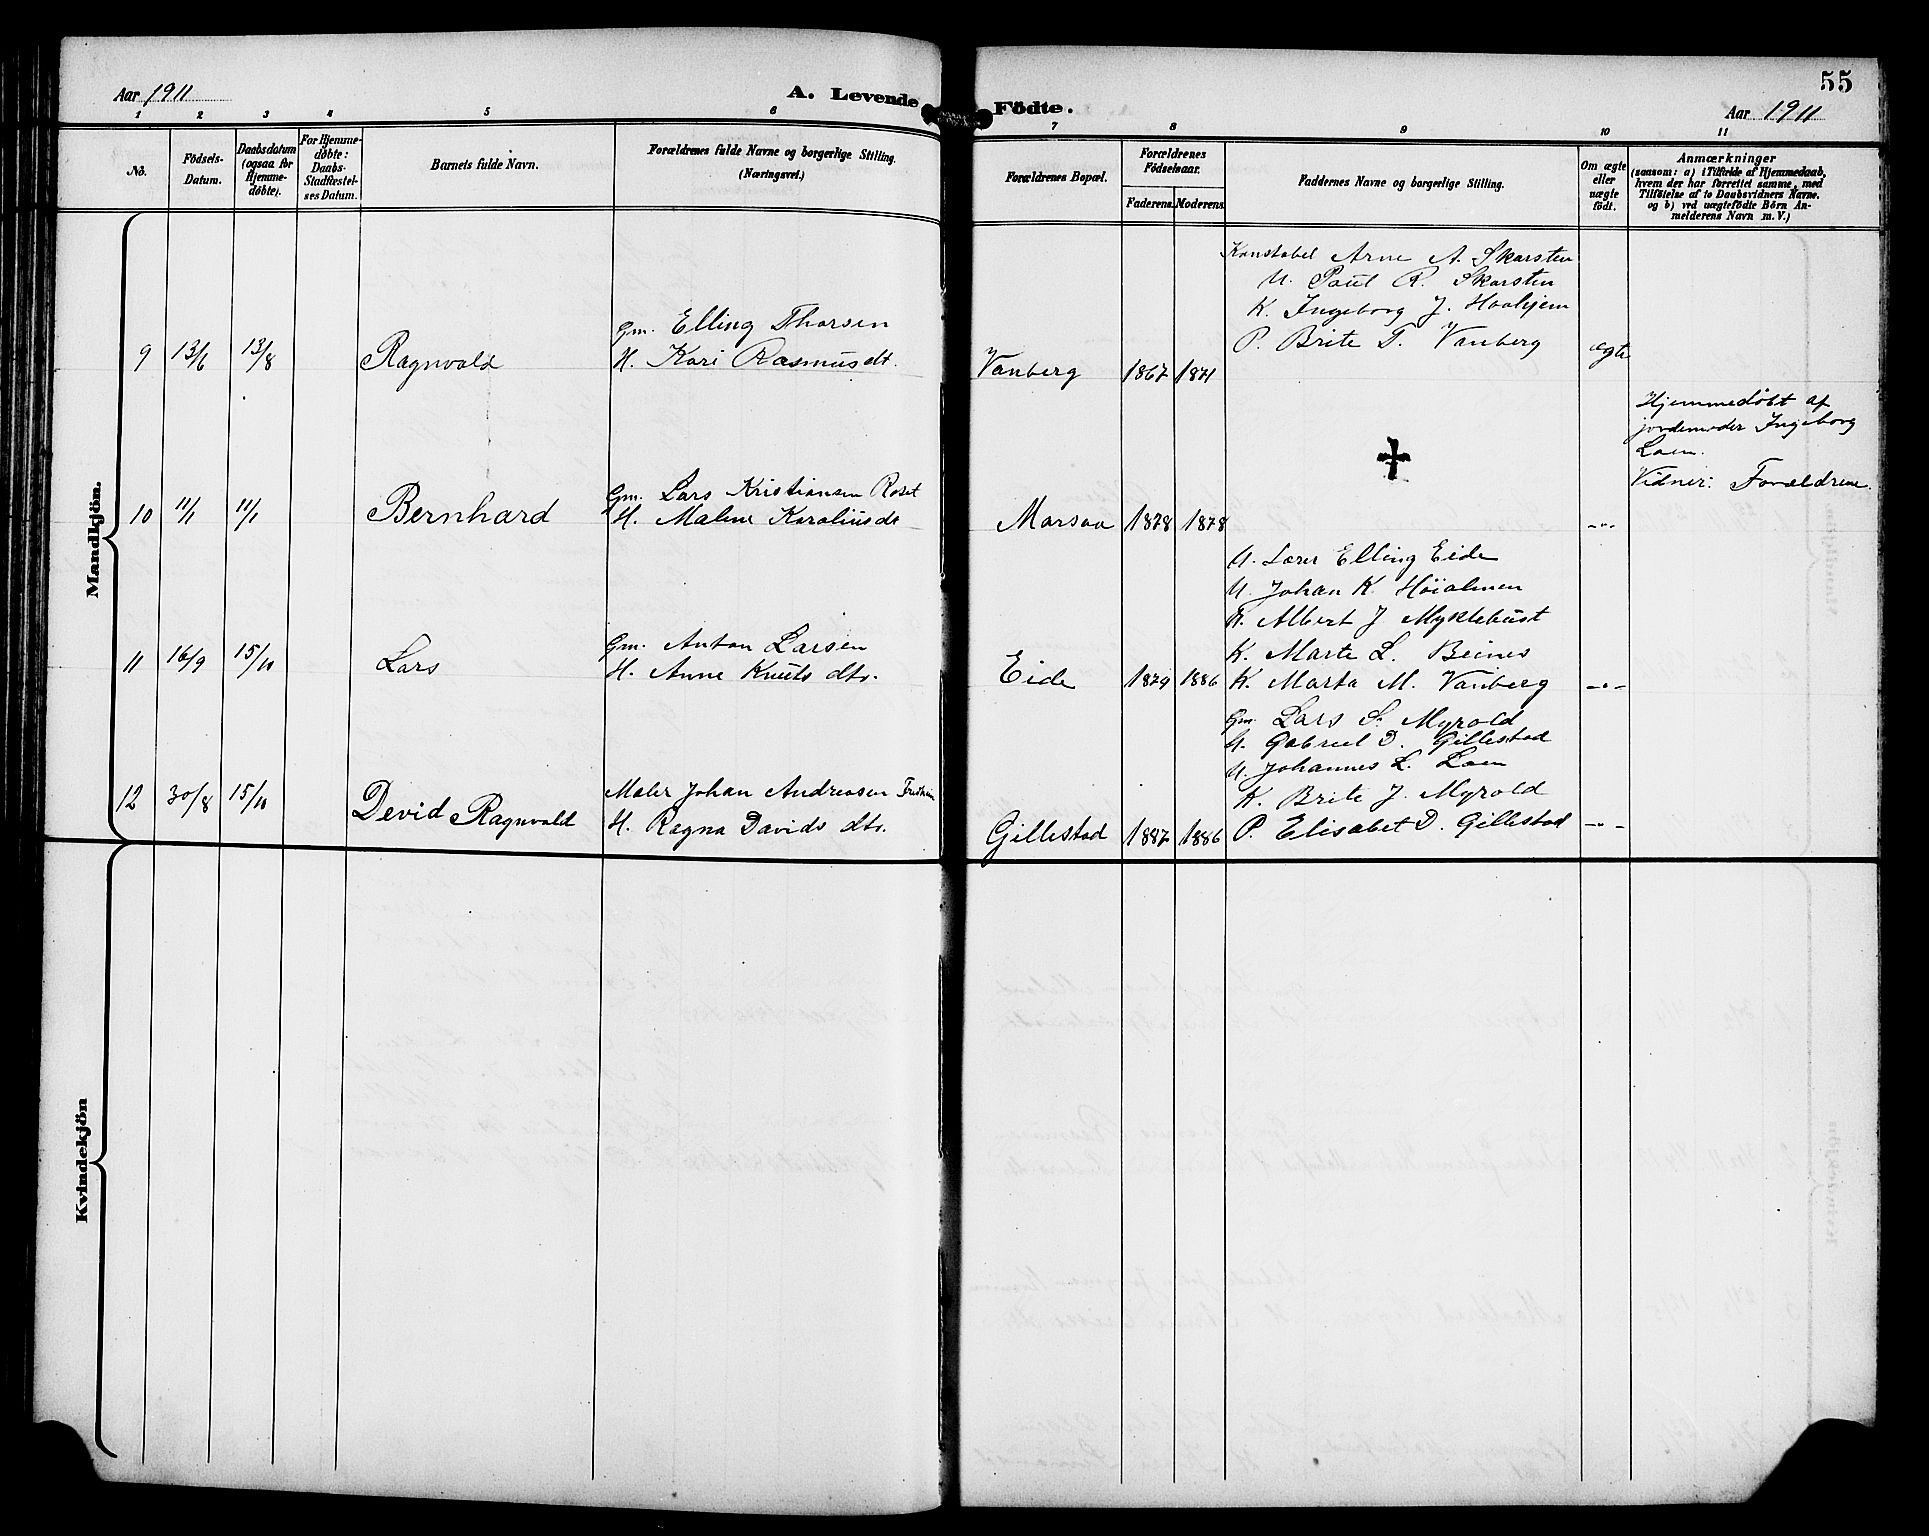 Aar 1911
A. Levende
Fødte.
55
Aar 1911
1 2 3 4 5 6 7 8 9 10 11
No.
Födsels-
Datum.
Daabsdatum
(ogsaa for
Hjemme-
döbte).
For Hjemme-
døbte:
Daabs-
Stadfæstel-
ses Datum.
Barnets fulde Navn.
Forældrenes fulde Navne og borgerlige Stilling.
(Næringsvei.)
Forældrenes Bopæl.
Forældrenes
Födselsaar.
Faderens.
Moderens.
Faddernes Navne og borgerlige Stilling.
Om ægte
eller
uægte
födt.
Anmærkninger
(saasom: a) i Tilfælde af Hjemmedaab,
hvem der har forrettet samme, med
Tilföielse af to Daabsvidners Navne.
og b) ved uægtefödte Börn An-
melderens Navn m. V.)
Mandkjön.
Konstabel Arne A. Skarsten
U. Paul R. Skarsten
K. Ingeborg J. Haahjem
P. Brite T. Vanberg
Gm. Elling Thorsen
9 13/6 13/8 Ragnvald H. Kari Rasmusdt. Vanberg 1867 1871 ægte
Hjemmedøbt af
jordemoder Ingeborg
Loen.
Vidner: Forældrene.
Gm. Lars Kristiansen Roset
10 11/1 11/1 Bernhard H. Malene Karoliusdt Marsaa 1878 1878 -"-
U. Lærer Elling Eide
U. Johan K. Höialmen
K. Albert J Myklebust
K. Marte L. Beines
Gm. Anton Larsen
11 16/9 15/10 Lars H. Anne Knuts dtr. Eide 1879 1886 K. Marta M. Vanberg -"-
Gm. Lars S. Myrold
U. Gabriel D. Gillestad
U. Johannes L. Loen
K. Brite J. Myrold
Maler Johan Andreasen
12 30/8 15/10 Devid Ragnvald H. Ragna Davids dtr. Gillestad 1887 1886 P. Elisabet D. Gillestad -"-
Kvindekjön